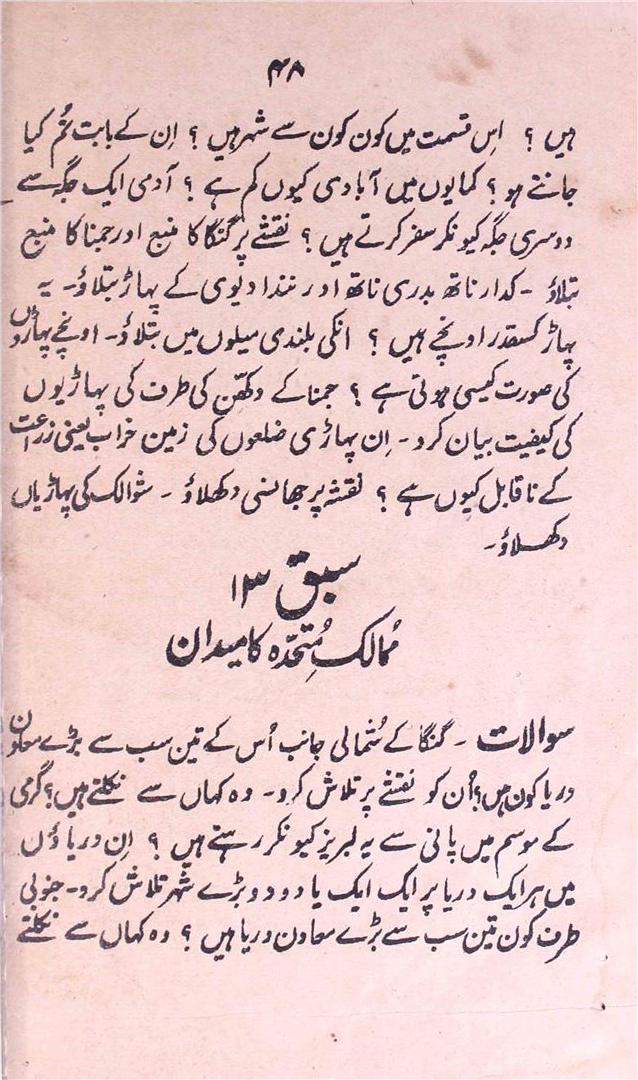 ۴۸
ہیں ؟ اِس قسمت میں کون کون سے شہر ہیں ؟ اِن کے بابت تُم کیا
جانتے ہو ؟ کمایوں میں آبادی کیوں کم ہے ؟ آدمی ایک جگہ سے
دوسری جگہ کیونکر سفر کرتے ہیں ؟ نقشے پر گنگا کا منبع اور جمنا کا منبع
بتلاؤ ۔ کدارناتھ بدری ناتھ اور نندا دیوی کے پہاڑ بتلاؤ ۔ یہ
پہاڑ کسقدر اونچے ہیں ؟ انکی بلندی میلوں میں بتلاؤ ۔ اونچے پہاڑوں
کی صورت کیسی ہوتی ہے ؟ جمنا کے دکھّن کی طرف کی پہاڑیوں
کی کیفیت بیان کرو ۔ اِن پہاڑی ضلعوں کی زمین خراب یعنی زراعت
کے ناقابل کیوں ہے ؟ نقشہ پر جھانسی دکھلاؤ ۔ شوالک کی پہاڑیاں
دکھلاؤ ۔
سبق ۱۳
مُمالک مُتحدّہ کا میدان
سوالات ۔ گنگا کے شُمالی جانب اُس کے تین سب سے بڑے معاون
دریا کون ہیں ؟ اُن کو نقشے پر تلاش کرو ۔ وہ کہاں سے نکلتے ہیں ؟ گرمی
کے موسم میں پانی سے یہ لبریز کیونکر رہتے ہیں ؟ اِن دریاؤں
میں ہر ایک دریا پر ایک ایک یا دو دو بڑے شہر تلاش کرو ۔ جنوبی
طرف کون تین سب سے بڑے معاون دریا ہیں ؟ وہ کہاں سے نکلتے